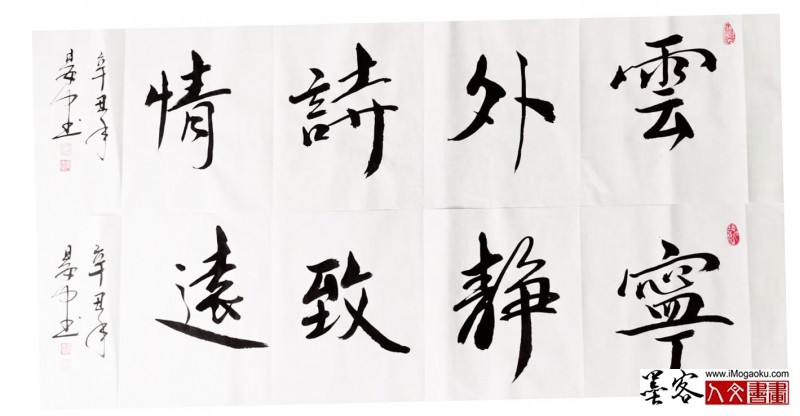 雲外詩情
辛丑年
晏中书
寧靜致遠
辛丑年
晏中书
www.iMogaoku.com
墨客
人文書畫